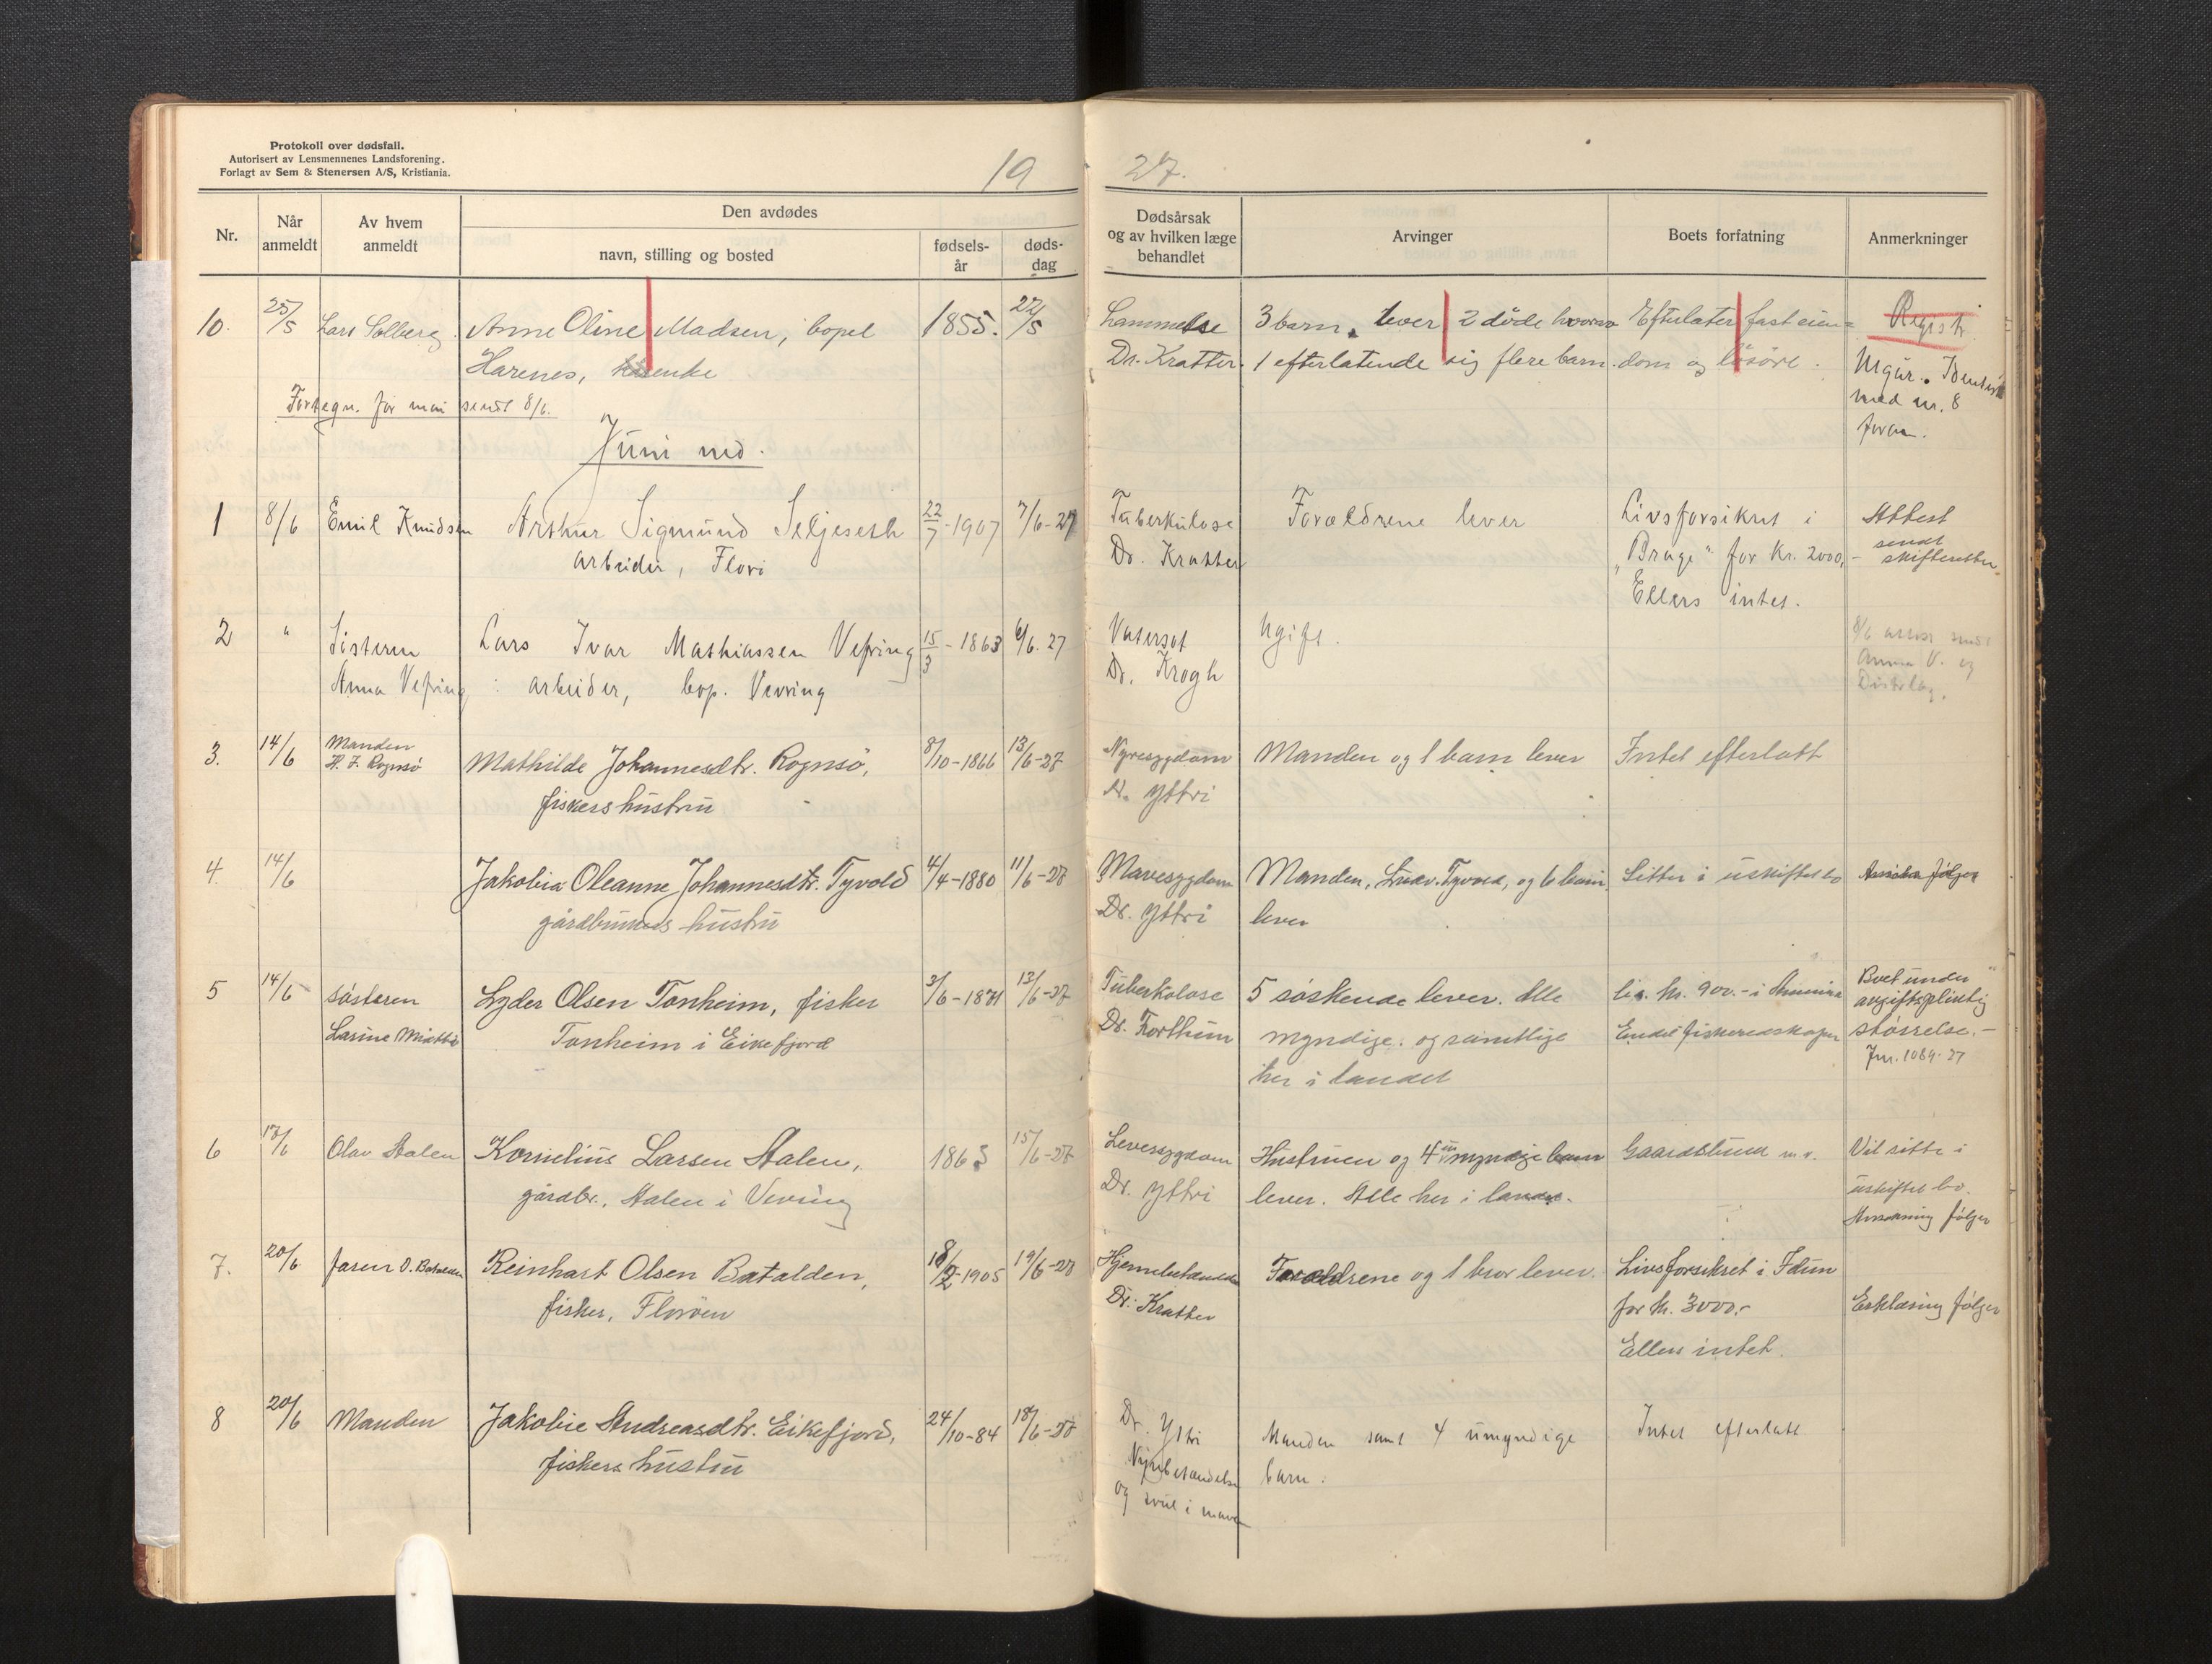 Protokoll over dødsfall.
Autorisert av Lensmennenes Landsforening.
Forlagt av Sem & Stenersen A/S, Kristiania.
19 27.
Nr. Når anmeldt Av hvem anmeldt Den avdødes navn, stilling og bosted fødsels-år døds-dag Dødsårsak og av hvilken læge behandlet Arvinger Boets forfatning Anmerkninger
10. 25/5 Lars Solberg. Anne Oline Madsen, bopel 1855. 22/5 Lammelse 3 barn lever 2 døde hvorav Efterlater fast eien= Registr
Harenes, enke Dr. Kratter. 1 efterlatende sig flere barn. dom og løsøre. Urgür. Identisk
med nr. 8
foran.
Fortegn. for mai sendt 8/6.
Juni md.
1 8/6 Emil Knudsen Arthur Sigmund Seljeseth 22/7-1907 7/6-27 Tuberkulose Forældrene lever Livsforsikret i Attest
arbeider, Florø Dr. Kratter "Brage" for Kr. 2000,- sendt skifteretten
Ellers intet.
2 " Søsteren Lars Ivar Mathiassen Vefring 15/3-1863 6/6.27 Vatersot Ugift. 8/6 attest sendt
Anna Vefring arbeider, bop. Vevring Dr. Krogh Anna V. og
3. 14/6 Manden Mathilde Johannesdtr. Rognsø, 8/10-1866 13/6-27 Nyresygdom Manden og 1 barn lever Intet efterlatt
H. J. Rognsø fiskers hustru Dr. Yttri
4. 14/6 Jakobia Oleanne Johannesdtr. Tyvold 4/4-1880 11/6-27 Mavesygdom Manden, Ludv. Tyvold, og 6 barn Sitter i uskiftet bo Ansökn følger
gårdbrukers hustru Dr. Yttri lever
5 14/6 søsteren Lyder Olsen Tonheim, fisker 3/6-1871 13/6-27 Tuberkolose 5 søskende lever. Alle liv. kr. 900.- i Boet under
Larine Tonheim i Eikefjord Dr. Forthun myndige. og samtlige Endel fiskeredskaper avgiftspliktig
her i landet størrelse.-
Jnr. 1084-27
6 17/6 Olav Stalen Kornelius Larsen Stalen, 1863 15/6-27 Leversygdom Hustruen og 4 umyndige barn Gaardsbruk m.v. Vil sitte i
gårdbr., Stalen i Vevring Dr. Yttri lever. Alle her i landet. uskiftet bo.
Ansøkning følger
7. 20/6 faren O. Batalden Reinhart Olsen Batalden, 18/2-1905 19/6-27 Hjernebetændelse Forældrene og 1 bror lever. Livsforsikret i Idun
fisker, Florøen Dr. Kratter for kr. 3000.- Erklæring følger
Ellers intet.
8 20/6 Manden Jakobie Andreasdtr. Eikefjord, 24/10-84 18/6-27 Dr. Yttri Manden samt 4 umyndige Intet efterlatt
fiskers hustru Nyrebetændelse barn.
og svul i maven